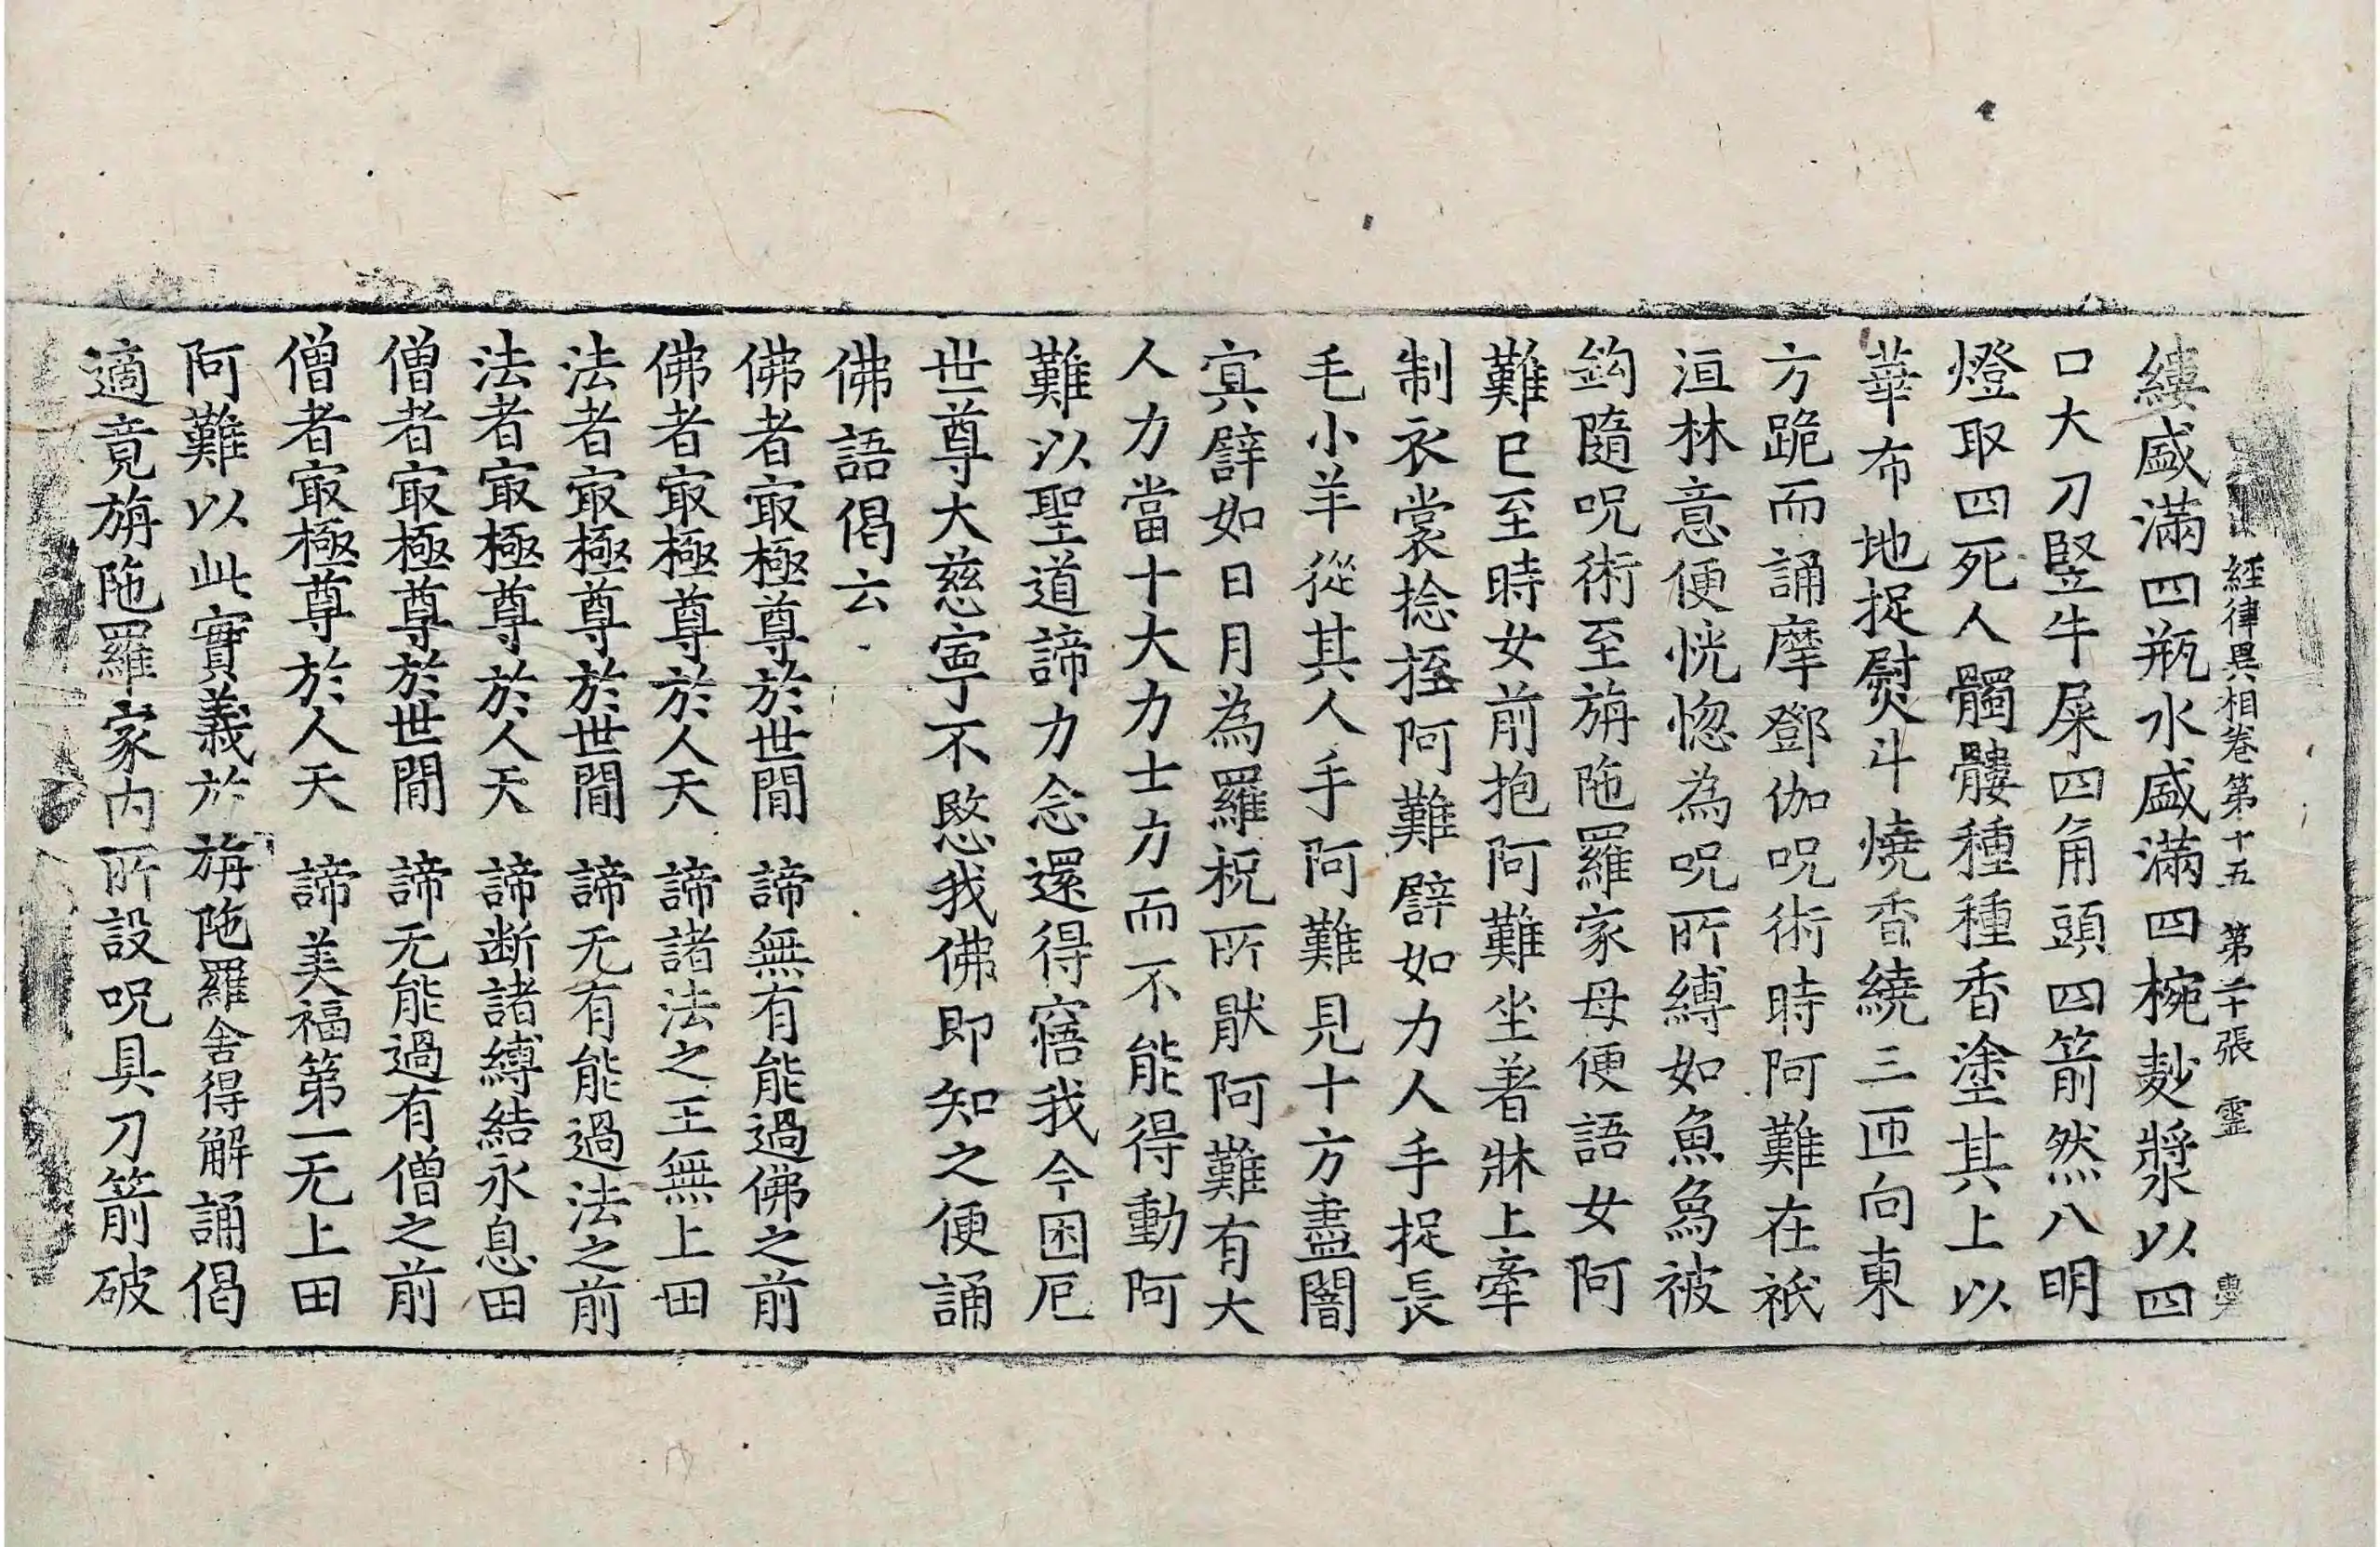 經律異相卷第十五 第二十張 靈
縷盛滿四瓶水盛滿四椀麨漿以四
口大刀竪牛屎四角頭四箭然八明
燈取四死人髑髏種種香塗其上以
華布地捉熨斗燒香繞三匝向東
方跪而誦摩鄧伽呪術時阿難在祇
洹林意便恍惚為呪所縛如魚為被
鈎隨呪術至旃陁羅家母便語女阿
難已至時女前抱阿難坐著牀上牽
制衣裳捻挃阿難譬如力人手捉長
毛小羊從其人手阿難見十方盡闇
冥譬如日月為羅祝所猒阿難有大
人力當十大力士力而不能得動阿
難以聖道諦力念還得寤我今困厄
世尊大慈寧不愍我佛即知之便誦
佛語偈云
佛者㝡極尊於世間 諦無有能過佛之前
佛者㝡極尊於人天 諦諸法之王無上田
法者㝡極尊於世間 諦无有能過法之前
法者㝡極尊於人天 諦断諸縛結永息田
僧者㝡極尊於世間 諦无能過有僧之前
僧者㝡極尊於人天 諦美福第一无上田
阿難以此實義於旃陁羅舍得解誦偈
適竟旃陁羅家内所設呪具刀箭破